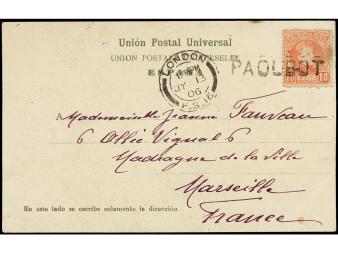 Unión Postal Universal
UNION POSTALE UNIVERSELLE
LONDON
JY 13
06
F.S.16
PAQUEBOT
10 10
A Mademoiselle Jeanne Fauveau
6 Allée Vignal 6
Madrague de la Ville
Marseille
France
En este lado se escribe solamente la dirección.